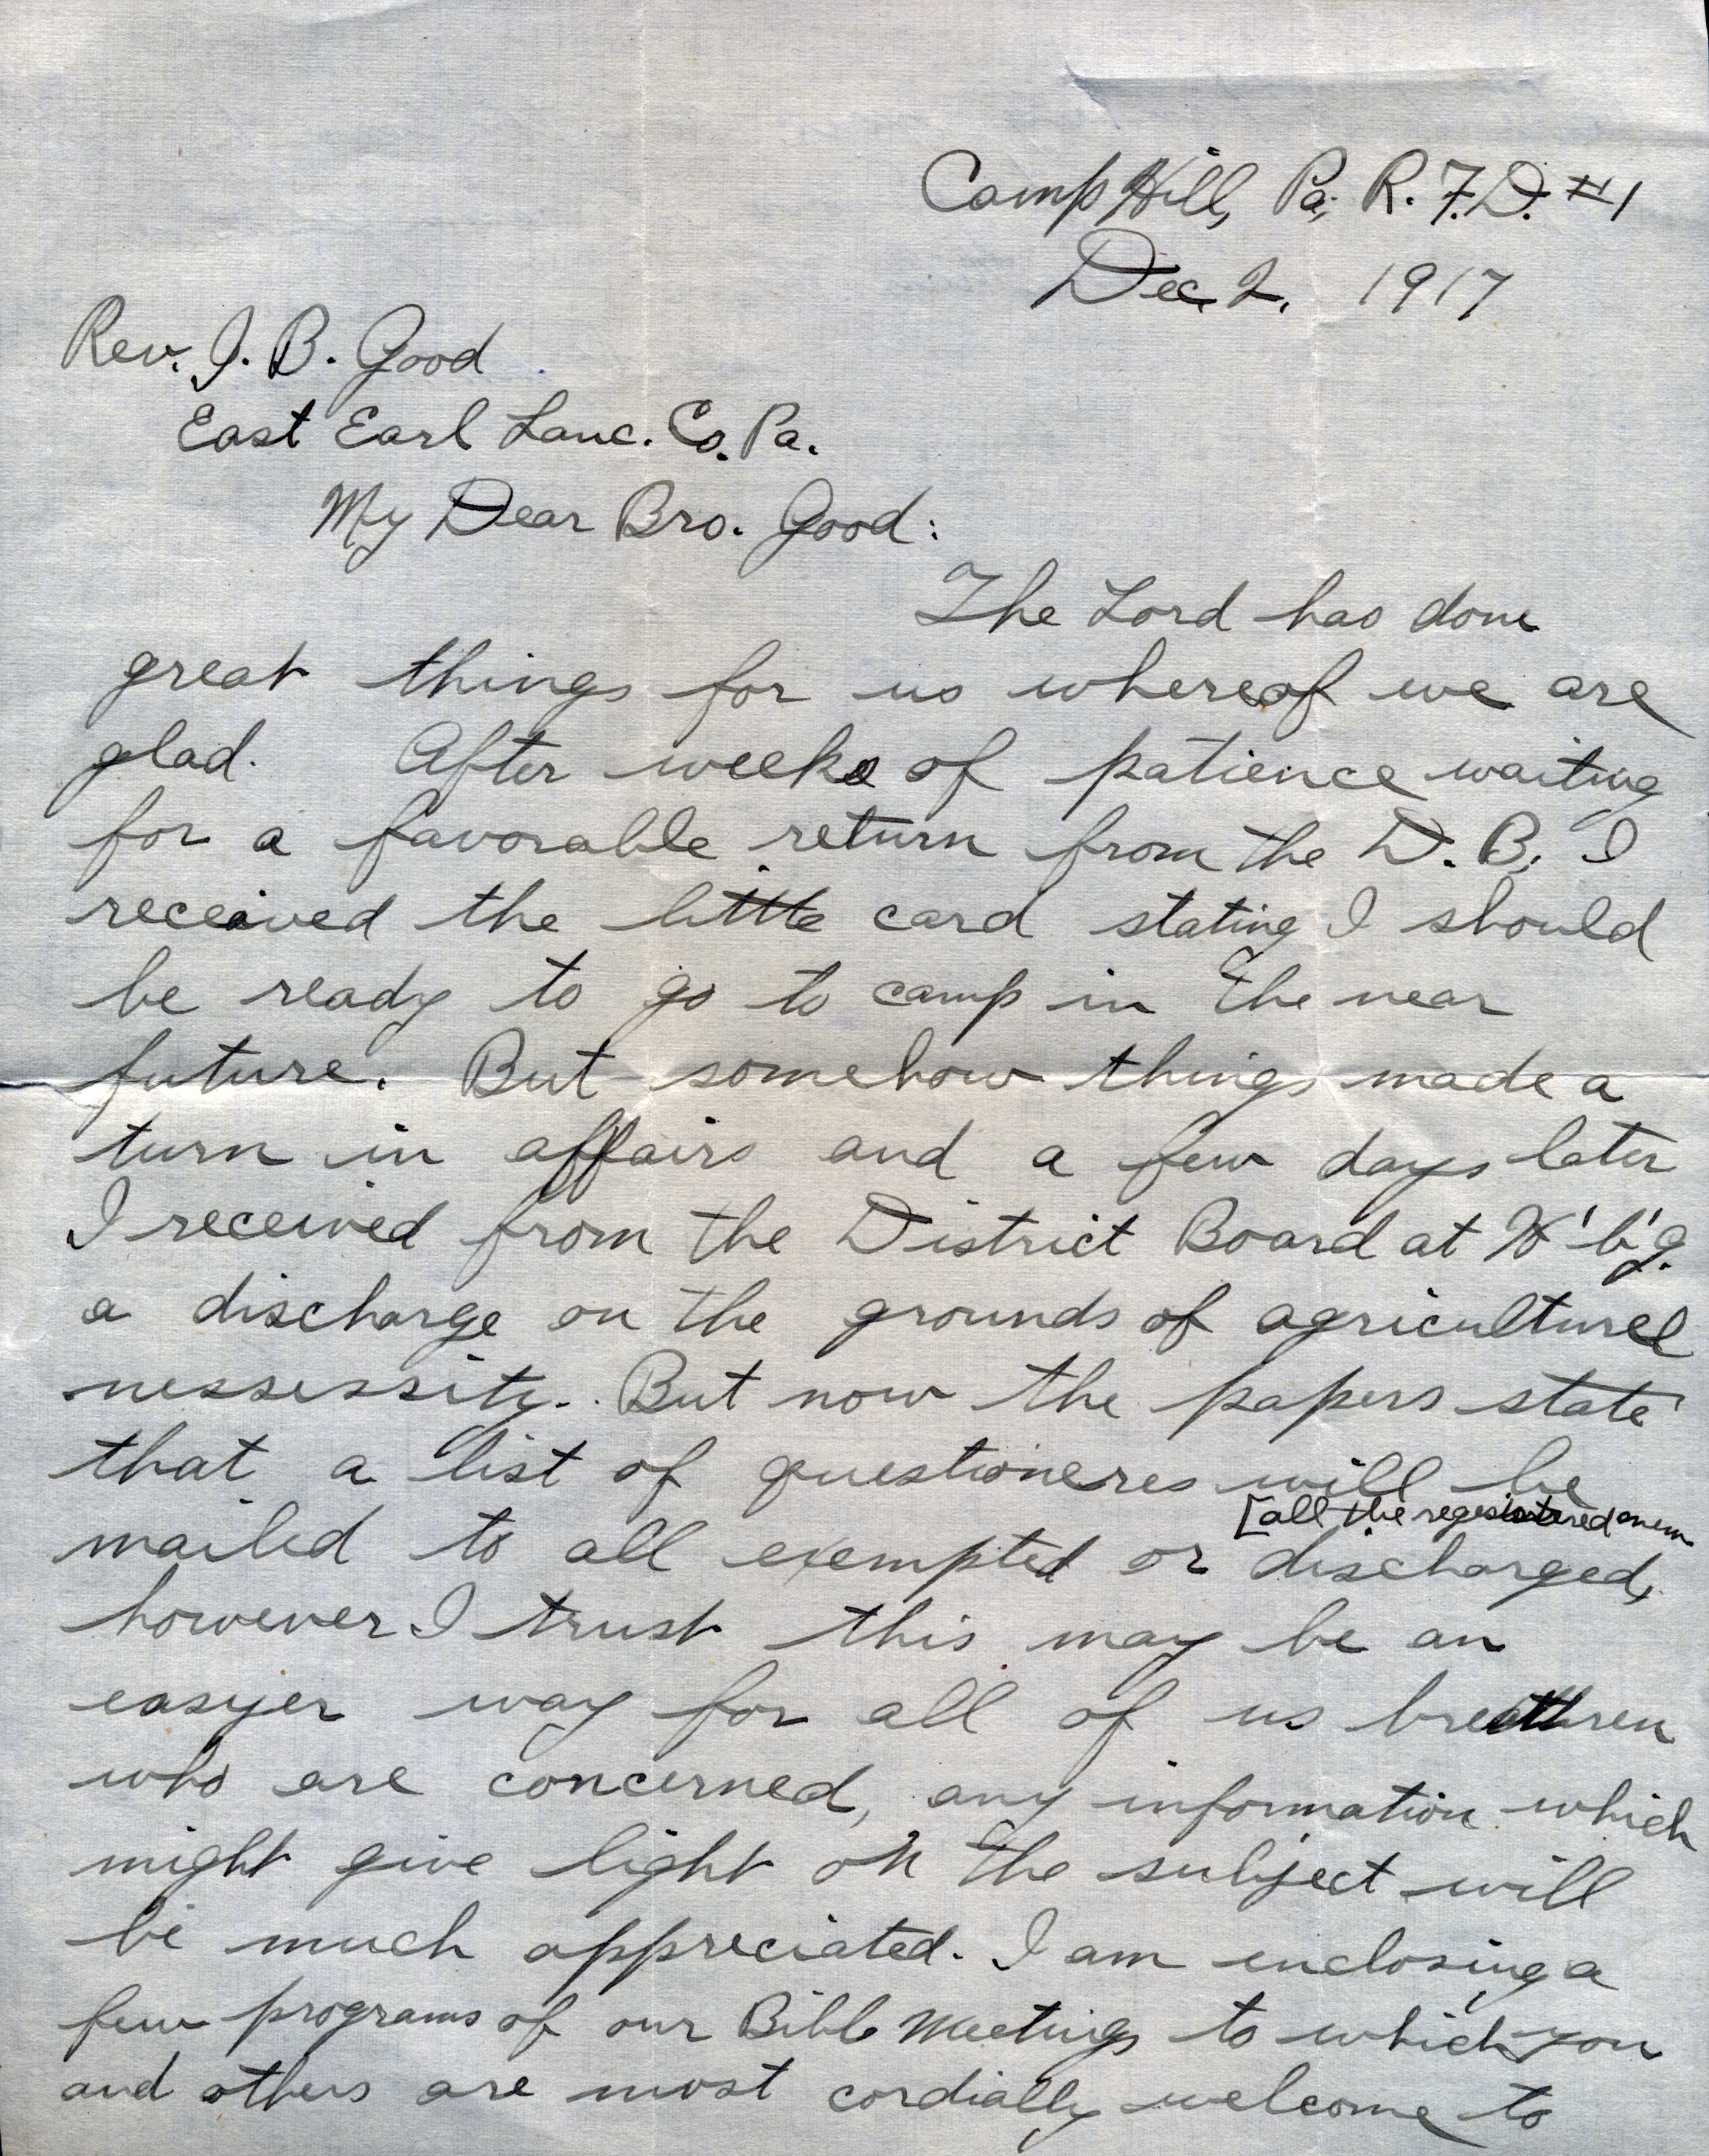 Camp Hill, Pa; R. F. D. #1
Dec. 2, 1917
Rev. I. B. Good
East Earl Lanc. Co. Pa.
My Dear Bro. Good:
The Lord has done
great things for us whereof we are
glad. After weeks of patience waiting
for a favorable return from the D. B. I
received the little card stating I should
be ready to go to camp in the near
future. But somehow things made a
turn in affairs and a few days later
I received from the District Board at H'b'g.
a discharge on the grounds of agriculturel
nessessity. But now the papers state
that a list of questioneres will be
[all the regesistered men
mailed to all exempted or discharged,
however I trust this may be an
easyer way for all of us breathren
who are concerned, any information which
might give light on the subject will
be much appreciated. I am enclosing a
few programs of our Bible Meetings to which you
and others are most cordially welcome to